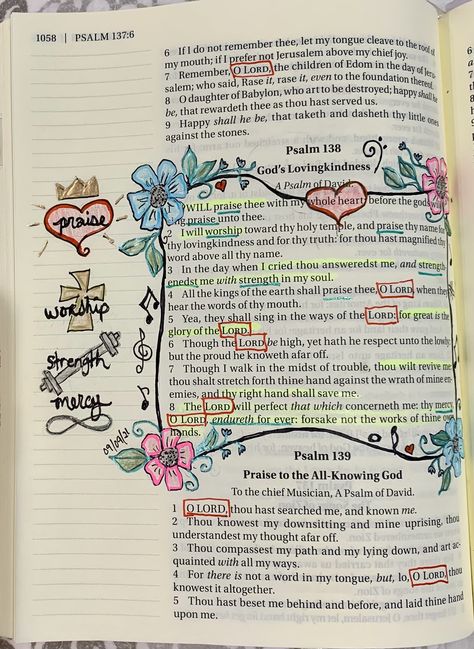 1058 | PSALM 137:6
6 If I do not remember thee, let my tongue cleave to the roof of
my mouth; if I prefer not Jerusalem above my chief joy.
7 Remember, O LORD, the children of Edom in the day of Jeru-
salem; who said, Rase it, rase it, even to the foundation thereof.
8 O daughter of Babylon, who art to be destroyed; happy shall he
be, that rewardeth thee as thou hast served us.
9 Happy shall he be, that taketh and dasheth thy little ones
against the stones.
Psalm 138
God's Lovingkindness
A Psalm of David.
WILL praise thee with my whole heart: before the gods will
sing praise unto thee.
2 I will worship toward thy holy temple, and praise thy name for
thy lovingkindness and for thy truth: for thou hast magnified thy
word above all thy name.
3 In the day when I cried thou answeredst me, and strength-
enedst me with strength in my soul.
4 All the kings of the earth shall praise thee, O LORD, when they
hear the words of thy mouth.
5 Yea, they shall sing in the ways of the LORD: for great is the
glory of the LORD.
6 Though the LORD be high, yet hath he respect unto the lowly:
but the proud he knoweth afar off.
7 Though I walk in the midst of trouble, thou will revive me:
thou shalt stretch forth thine hand against the wrath of mine en-
emies, and thy right hand shall save me.
8 The LORD will perfect that which concerneth me: thy mercy,
O LORD, endureth for ever: forsake not the works of thine own
hands.
praise
worship
strength
mercy
09/29/21
Psalm 139
Praise to the All-Knowing God
To the chief Musician, A Psalm of David.
1 O LORD, thou hast searched me, and known me.
2 Thou knowest my downsitting and mine uprising, thou
understandest my thought afar off.
3 Thou compassest my path and my lying down, and art ac-
quainted with all my ways.
4 For there is not a word in my tongue, but, lo, O LORD, thou
knowest it altogether.
5 Thou hast beset me behind and before, and laid thine hand
upon me.